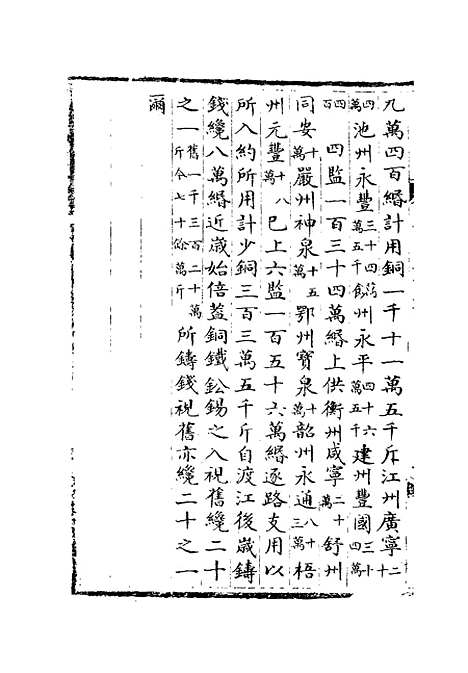 九萬四百緡計用銅一千十一萬五千斥江州廣寧二十
四萬池州永豐三十四萬五千饒州永平四十六萬五千建州豐國三十四萬
四百四監一百三十四萬緡上供衡州咸寧二十萬舒州
同安十萬嚴州神泉十五萬鄂州寶泉十萬韶州永通八十三萬梧
州元豐十八萬巳上六監一百五十六萬緡逐路支用以
所入約所用計少銅三百三萬五千斤自渡江後嵗鑄
錢纔八萬緡近嵗始倍葢銅鐵鈆錫之入視舊纔二十
之一舊一千三百二十萬斤今七十餘萬斤所鑄錢視舊亦纔二十之一
爾